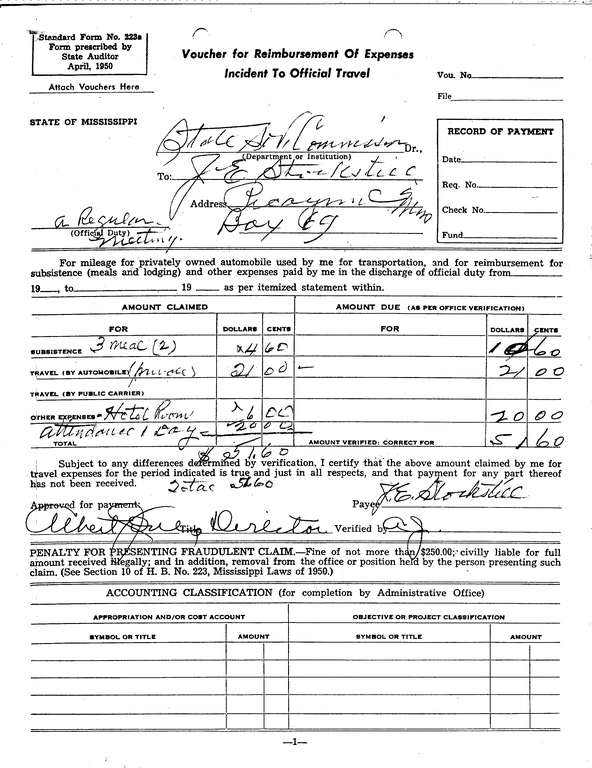 Standard Form No. 223a
Form prescribed by
State Auditor
April, 1950
Attach Vouchers Here
Voucher for Reimbursement Of Expenses
Incident To Official Travel
Vou. No.
File
STATE OF MISSISSIPPI
State Commission Dr.,
(Department or Institution)
To: J E Stockstill
Address Picayune Miss
Box 69
a Regular
(Official Duty)
Meeting.
RECORD OF PAYMENT
Date
Req. No.
Check No.
Fund
For mileage for privately owned automobile used by me for transportation, and for reimbursement for
subsistence (meals and lodging) and other expenses paid by me in the discharge of official duty from
19___, to___ 19___ as per itemized statement within.
AMOUNT CLAIMED AMOUNT DUE (AS PER OFFICE VERIFICATION)
FOR DOLLARS CENTS FOR DOLLARS CENTS
SUBSISTENCE 3 meal (2) 4 60 10 60
TRAVEL (BY AUTOMOBILE) (private) 21 00 — 21 00
TRAVEL (BY PUBLIC CARRIER)
OTHER EXPENSES - Hotel Room 6 00 20 00
Attendance 1 Day = 20 00
TOTAL $ 51.60 AMOUNT VERIFIED: CORRECT FOR 51 60
Subject to any differences determined by verification, I certify that the above amount claimed by me for
travel expenses for the period indicated is true and just in all respects, and that payment for any part thereof
has not been received. Total 51.60
Payee J.E. Stockstill
Approved for payment:
Albert Title Director Verified by
PENALTY FOR PRESENTING FRAUDULENT CLAIM.—Fine of not more than $250.00; civilly liable for full
amount received illegally; and in addition, removal from the office or position held by the person presenting such
claim. (See Section 10 of H. B. No. 223, Mississippi Laws of 1950.)
ACCOUNTING CLASSIFICATION (for completion by Administrative Office)
APPROPRIATION AND/OR COST ACCOUNT OBJECTIVE OR PROJECT CLASSIFICATION
SYMBOL OR TITLE AMOUNT SYMBOL OR TITLE AMOUNT
—1—